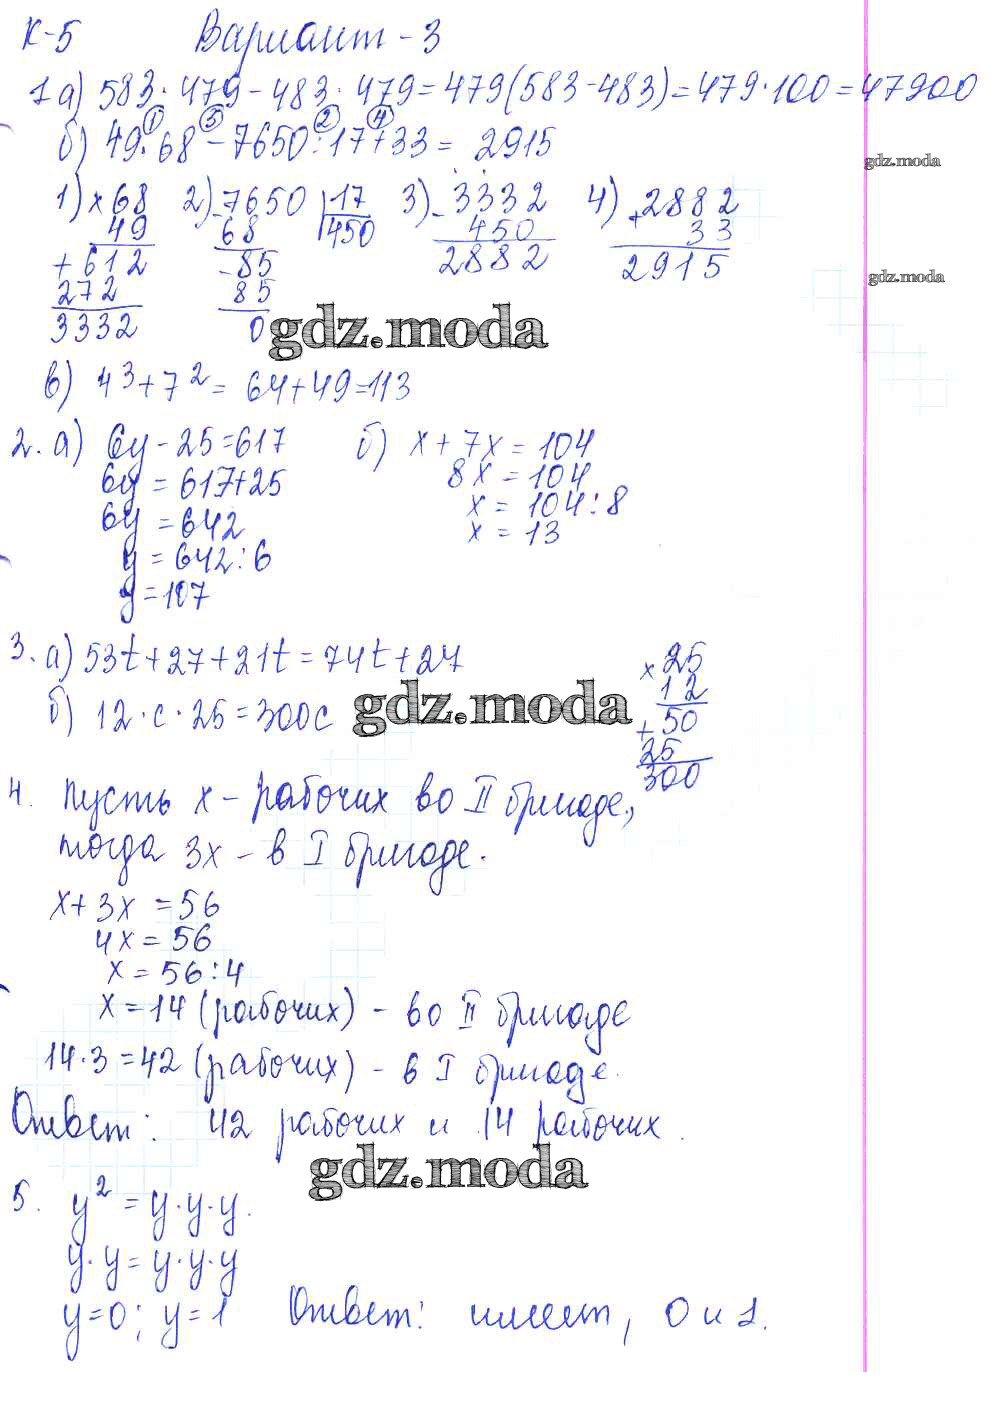 К-5 Вариант - 3
1 а) 583 · 479 - 483 · 479 = 479(583 - 483) = 479 · 100 = 47900
① ③ ② ④
б) 49 · 68 - 7650 : 17 + 33 = 2915
gdz.moda
1) × 68 2) - 7650 17 3) - 3332 4) + 2882
49 68 450 450 33
+ 612 - 85 2882 2915
272 85
3332 0
gdz.moda
gdz.moda
в) 4³ + 7² = 64 + 49 = 113
2. а) 6y - 25 = 617 б) x + 7x = 104
6y = 617+25 8x = 104
6y = 642 x = 104 : 8
y = 642 : 6 x = 13
y = 107
3. а) 53t + 27 + 21t = 74t + 27 × 25
б) 12 · c · 25 = 300c 12
gdz.moda
+ 50
25
300
4. Пусть x - рабочих во II бригаде,
тогда 3x - в I бригаде.
x + 3x = 56
4x = 56
x = 56 : 4
x = 14 (рабочих) - во II бригаде
14 · 3 = 42 (рабочих) - в I бригаде.
Ответ: 42 рабочих и 14 рабочих.
gdz.moda
5. y² = y · y · y.
y · y = y · y · y
y = 0; y = 1 Ответ: имеет, 0 и 1.